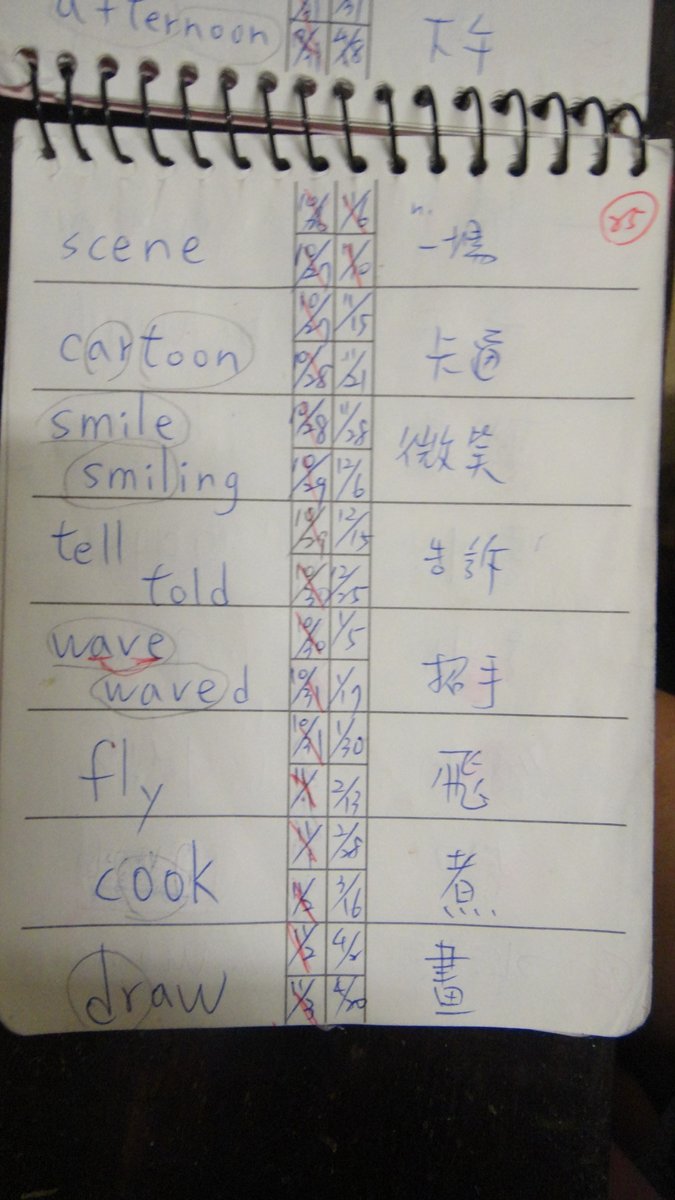 afternoon 下午
4/8
n. 25
scene 10/26 11/6 一場
10/27 11/10
10/27 11/15
cartoon 卡通
10/28 11/21
smile 10/28 11/28 微笑
smiling 10/29 12/6
tell 10/29 12/15 告訴
told 10/30 12/25
wave 10/30 1/5 招手
waved 10/31 1/17
10/31 1/30
fly 飛
11/1 2/13
11/1 2/28
cook 煮
11/2 3/16
11/2
draw 畫
11/3 4/20